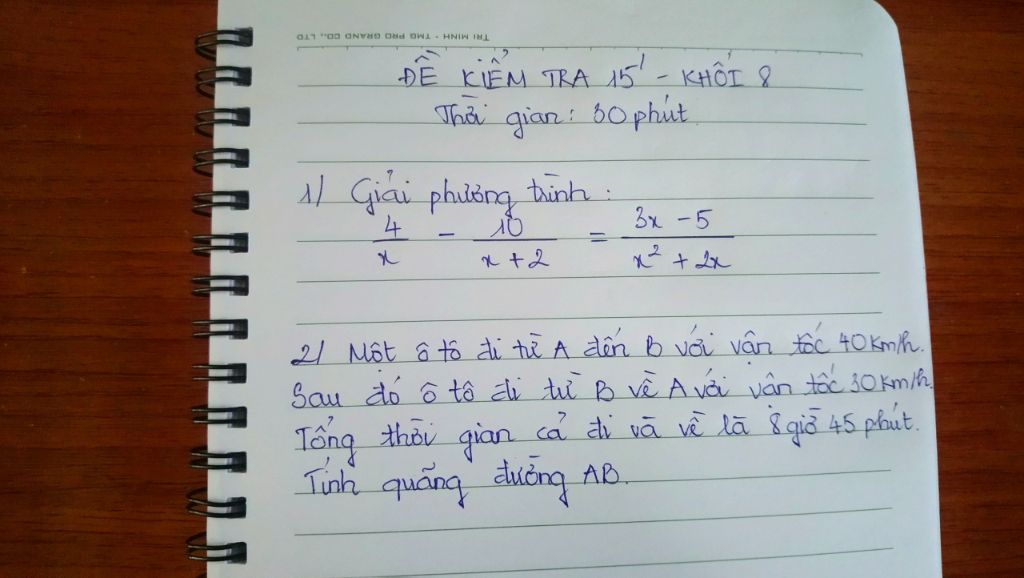 TRI MINH - TMG PRO GRAND CO., LTD
ĐỀ KIỂM TRA 15' - KHỐI 8
Thời gian: 30 phút
1/ Giải phương trình:
4/x - 10/(x + 2) = (3x - 5)/(x² + 2x)
2/ Một ô tô đi từ A đến B với vận tốc 40 Km/h.
Sau đó ô tô đi từ B về A với vận tốc 30 Km/h.
Tổng thời gian cả đi và về là 8 giờ 45 phút.
Tính quãng đường AB.